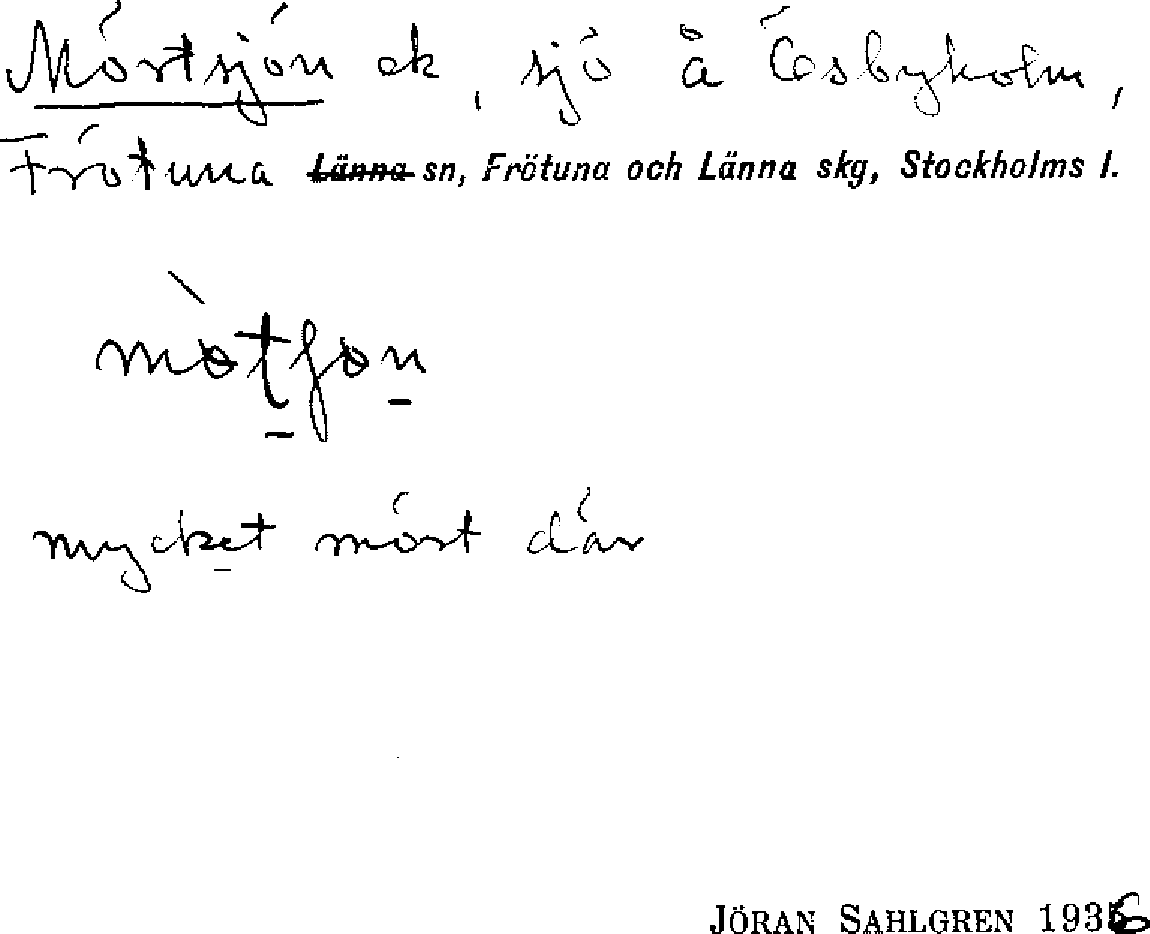 Mörtsjön ek, sjö å Ösbyholm,
Frötuna Länna sn, Frötuna och Länna skg, Stockholms l.
mycket mört där
JÖRAN SAHLGREN 1936